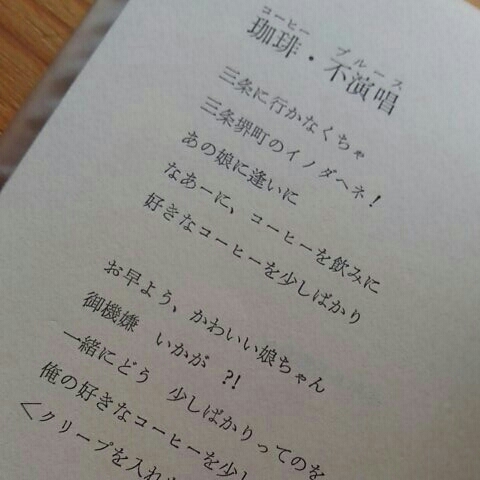 コーヒー ブルース
珈琲・不演唱
三条に行かなくちゃ
三条堺町のイノダヘネ!
あの娘に逢いに
なあーに、コーヒーを飲みに
好きなコーヒーを少しばかり
お早よう、かわいい娘ちゃん
御機嫌 いかが ?!
一緒にどう 少しばかりってのを
俺の好きなコーヒーを少し
＜クリープを入れ